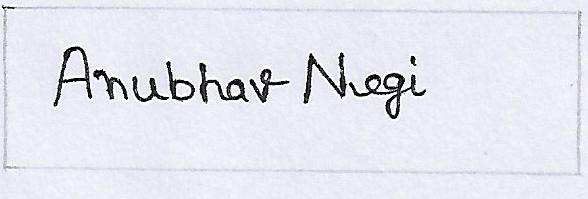 Anubhav Negi